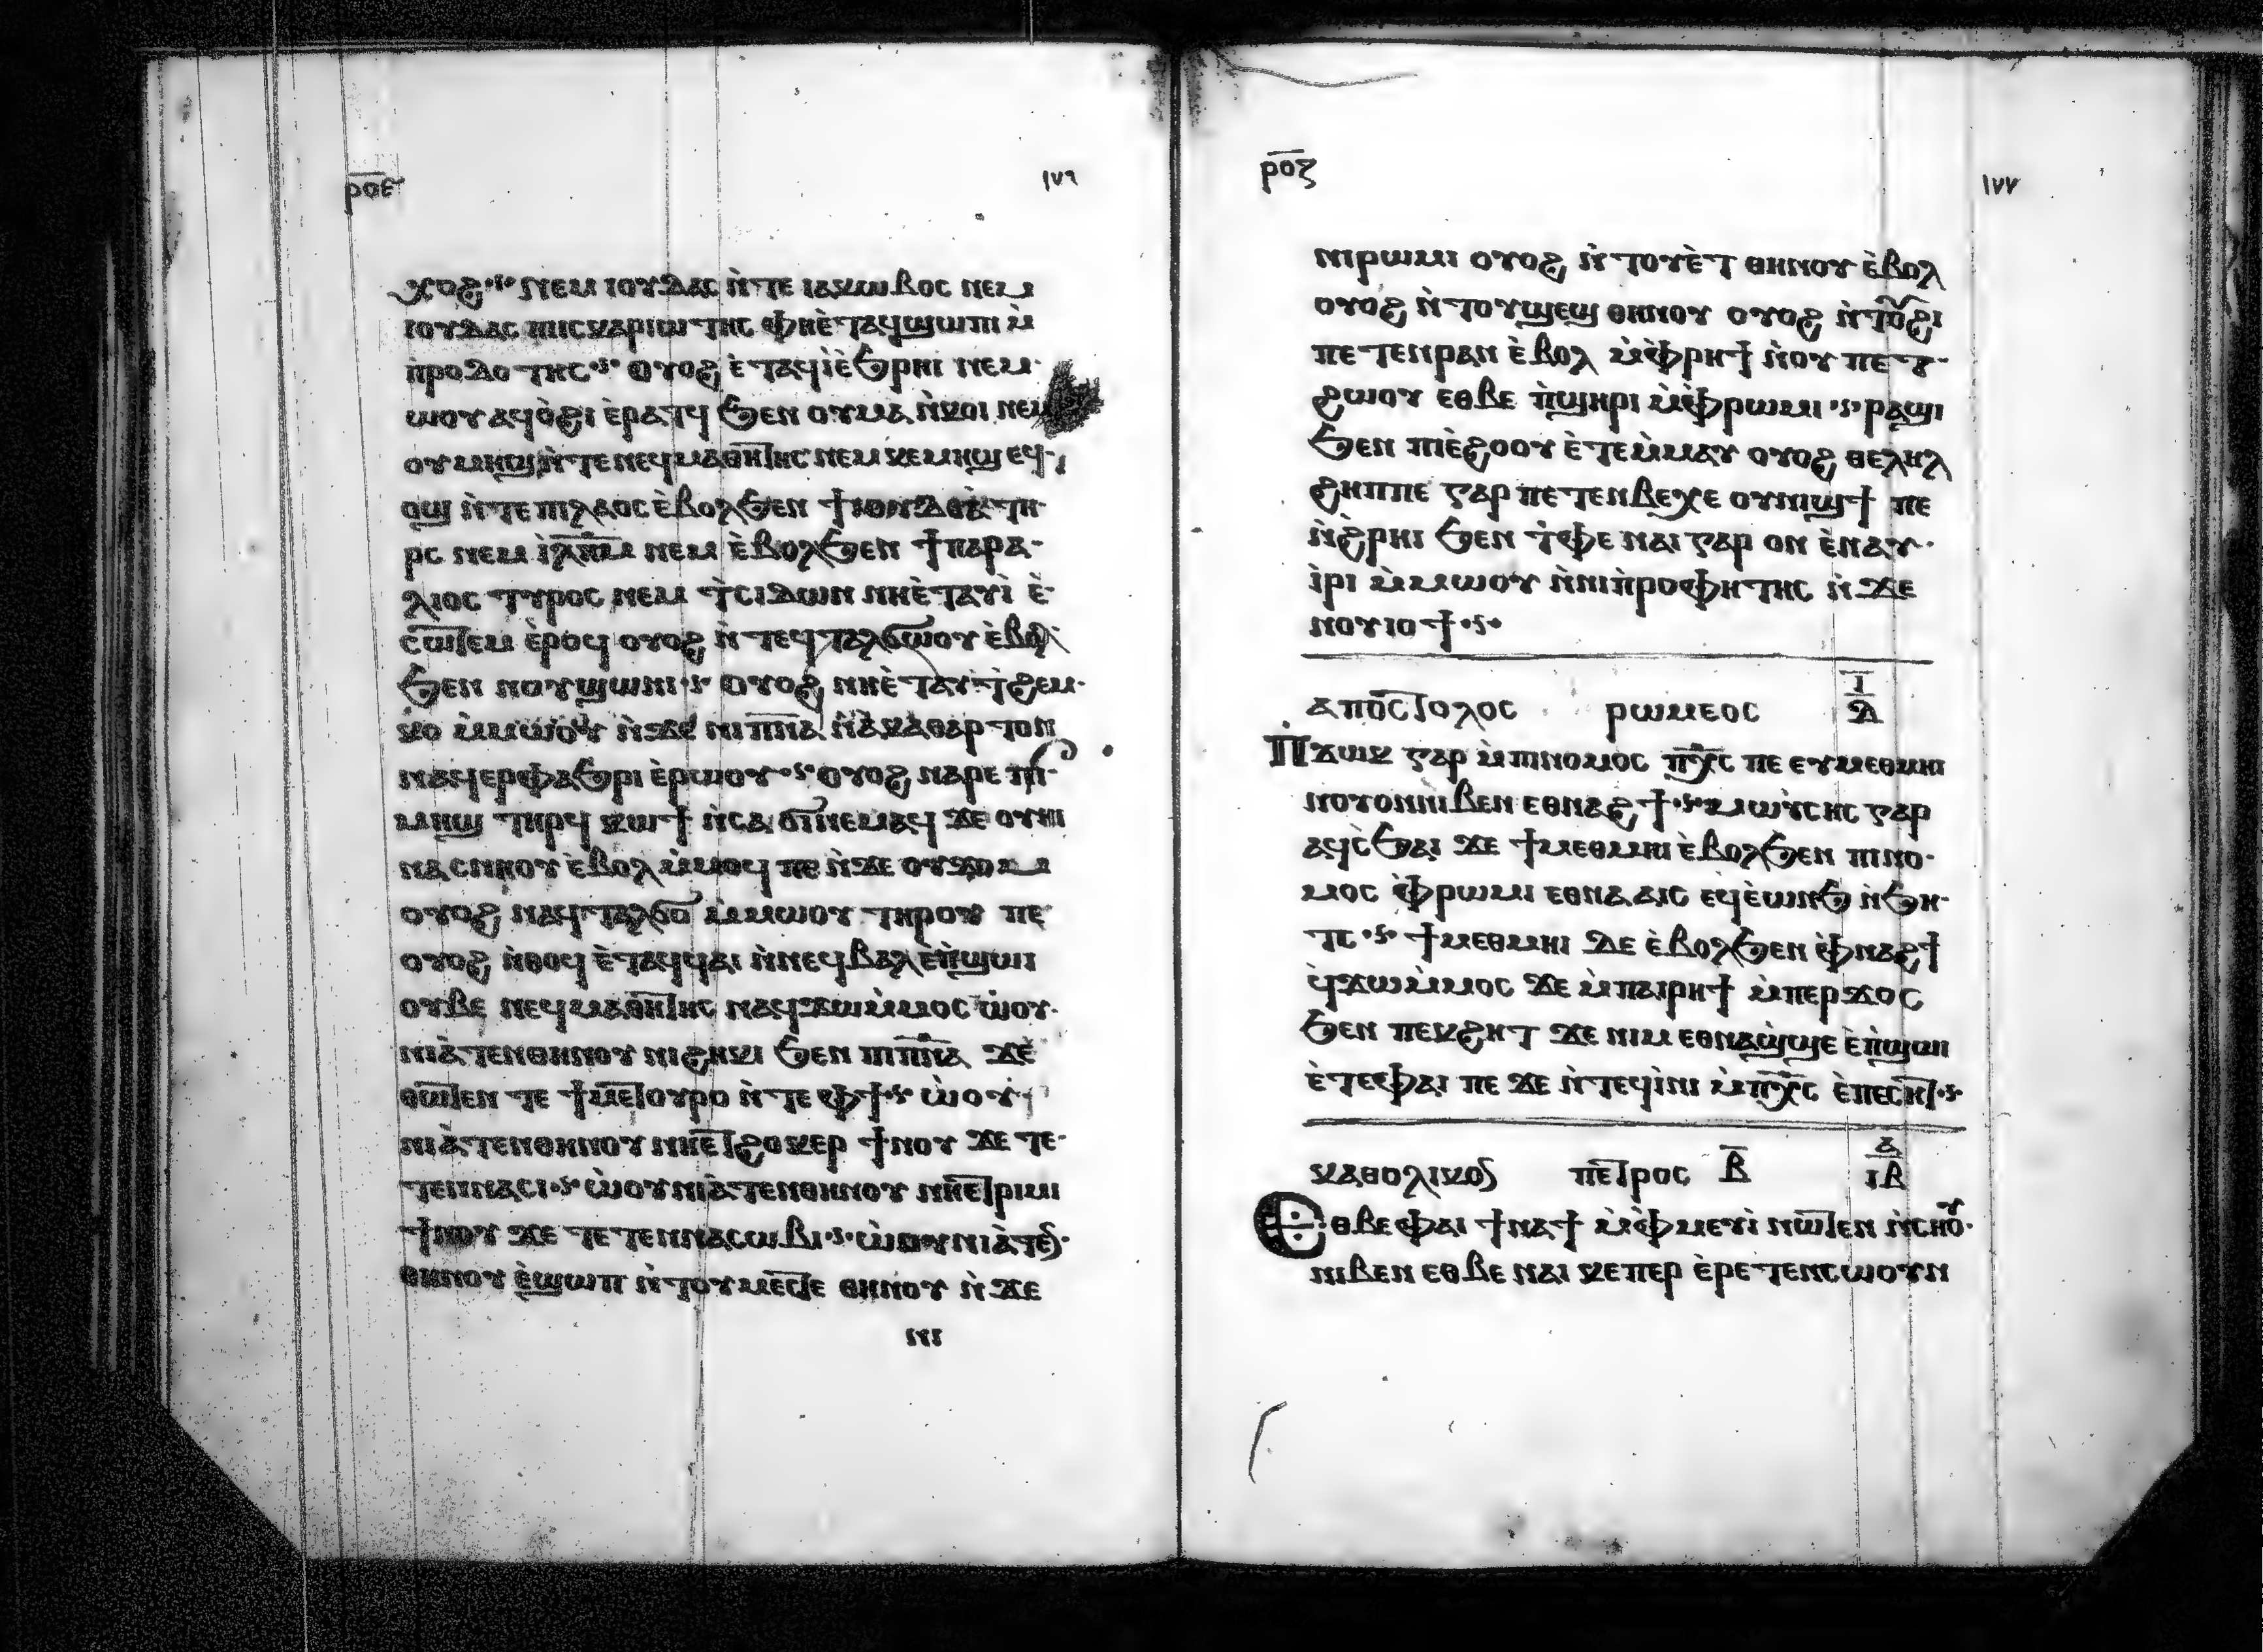 ⲣⲟⲋ ١٧٦
ⲭⲟⲥ ⲛⲉⲙ ⲓⲟⲩⲇⲁⲥ ⲛ̀ⲧⲉ ⲓⲁⲕⲱⲃⲟⲥ ⲛⲉⲙ
ⲓⲟⲩⲇⲁⲥ ⲡⲓⲥⲕⲁⲣⲓⲱⲧⲏⲥ ⲫⲏⲉ̀ⲧⲁϥϣⲱⲡⲓ ⲙ̀
ⲡⲣⲟⲇⲟⲧⲏⲥ ⲟⲩⲟϩ ⲉ̀ⲧⲁϥⲓ̀ⲉ̀ϧⲣⲏⲓ ⲛⲉⲙ
ⲱⲟⲩ ⲁϥⲟ̀ϩⲓ ⲉ̀ⲣⲁⲧϥ ϧⲉⲛ ⲟⲩⲙⲁ ⲛ̀ⲕⲟⲓ ⲛⲉⲙ
ⲟⲩⲙⲏϣ ⲛ̀ⲧⲉ ⲛⲉϥⲙⲁⲑⲏⲧⲏⲥ ⲛⲉⲙ ⲕⲉⲙⲏϣ ⲉϥ
ⲟϣ ⲛ̀ⲧⲉ ⲡⲓⲗⲁⲟⲥ ⲉ̀ⲃⲟⲗϧⲉⲛ ϯⲓⲟⲩⲇⲉⲁ̀ ⲧⲏ
ⲣⲥ ⲛⲉⲙ ⲓ̀ⲗ̅ⲏ̅ⲙ̅ ⲛⲉⲙ ⲉ̀ⲃⲟⲗϧⲉⲛ ϯⲡⲁⲣⲁ
ⲗⲓⲟⲥ ⲧⲩⲣⲟⲥ ⲛⲉⲙ ⲧ̀ⲥⲓⲇⲱⲛ ⲛⲏⲉ̀ⲧⲁⲩⲓ̀ ⲉ̀
ⲥⲱⲧⲉⲙ ⲉ̀ⲣⲟϥ ⲟⲩⲟϩ ⲛ̀ⲧⲉϥⲧⲁⲗϭⲱⲟⲩ ⲉ̀ⲃⲟⲗ
ϧⲉⲛ ⲛⲟⲩϣⲱⲛⲓ ⲟⲩⲟϩ ⲛⲏⲉ̀ⲧⲁⲩϯϩⲉⲙ
ⲕⲟ ⲙ̀ⲙⲱⲟⲩ ⲛ̀ϫⲉ ⲛⲓⲡ̅ⲛ̅ⲁ̅ ⲛ̀ⲁⲕⲁⲑⲁⲣⲧⲟⲛ
ⲛⲁϥⲉⲣⲫⲁϧⲣⲓ ⲉ̀ⲣⲱⲟⲩ ⲟⲩⲟϩ ⲛⲁⲣⲉ ⲡⲓ
ⲙⲏϣ ⲧⲏⲣϥ ⲕⲱϯ ⲛ̀ⲥⲁ ϭⲓⲛⲉⲙⲁϥ ϫⲉ ⲟⲩⲏⲓ
ⲛⲁⲥⲛⲏⲟⲩ ⲉ̀ⲃⲟⲗ ⲙ̀ⲙⲟϥ ⲡⲉ ⲛ̀ϫⲉ ⲟⲩϫⲟⲙ
ⲟⲩⲟϩ ⲛⲁϥⲧⲁⲗϭⲟ ⲙ̀ⲙⲱⲟⲩ ⲧⲏⲣⲟⲩ ⲡⲉ
ⲟⲩⲟϩ ⲛ̀ⲑⲟϥ ⲉ̀ⲧⲁϥϥⲁⲓ ⲛ̀ⲛⲉϥⲃⲁⲗ ⲉ̀ⲡ̀ϣⲱⲓ
ⲟⲩⲃⲉ ⲛⲉϥⲙⲁⲑⲏⲧⲏⲥ ⲛⲁϥϫⲱⲙ̀ⲙⲟⲥ ⲱ̀ⲟⲩ
ⲛⲓⲁ̀ⲧⲉⲛⲑⲏⲛⲟⲩ ⲛⲓϩⲏⲕⲓ ϧⲉⲛ ⲡⲓⲡ̅ⲛ̅ⲁ̅ ϫⲉ
ⲑⲱⲧⲉⲛ ⲧⲉ ϯⲙⲉⲧⲟⲩⲣⲟ ⲛ̀ⲧⲉ ⲫϯ ⲱ̀ⲟⲩ
ⲛⲓⲁ̀ⲧⲉⲛⲑⲏⲛⲟⲩ ⲛⲏⲉⲧϩⲟⲕⲉⲣ ϯⲛⲟⲩ ϫⲉ ⲧⲉ
ⲧⲉⲛⲛⲁⲥⲓ ⲱ̀ⲟⲩⲛⲓⲁ̀ⲧⲉⲛⲑⲏⲛⲟⲩ ⲛⲏⲉⲧⲣⲓⲙⲓ
ϯⲛⲟⲩ ϫⲉ ⲧⲉⲧⲉⲛⲛⲁⲥⲱⲃⲓ ⲱ̀ⲟⲩⲛⲓⲁ̀ⲧⲉⲛ
ⲑⲏⲛⲟⲩ ⲉ̀ϣⲱⲡ ⲛ̀ⲧⲟⲩⲙⲉⲥⲧⲉ ⲑⲏⲛⲟⲩ ⲛ̀ϫⲉ
ⲛⲓ
ⲣⲟⲍ ١٧٧
ⲛⲓⲣⲱⲙⲓ ⲟⲩⲟϩ ⲛ̀ⲧⲟⲩⲉ̀ⲧ ⲑⲏⲛⲟⲩ ⲉ̀ⲃⲟⲗ
ⲟⲩⲟϩ ⲛ̀ⲧⲟⲩϣⲉϣ ⲑⲏⲛⲟⲩ ⲟⲩⲟϩ ⲛ̀ⲧⲟⲩϩⲓ
ⲡⲉⲧⲉⲛⲣⲁⲛ ⲉ̀ⲃⲟⲗ ⲙ̀ⲫ̀ⲣⲏϯ ⲛ̀ⲟⲩ ⲡⲉⲧ
ϩⲱⲟⲩ ⲉⲑⲃⲉ ⲡ̀ϣⲏⲣⲓ ⲙ̀ⲫ̀ⲣⲱⲙⲓ ⲣⲁϣⲓ
ϧⲉⲛ ⲡⲓⲉ̀ϩⲟⲟⲩ ⲉ̀ⲧⲉⲙ̀ⲙⲁⲩ ⲟⲩⲟϩ ⲑⲉⲗⲏⲗ
ϩⲏⲡⲡⲉ ⲅⲁⲣ ⲡⲉⲧⲉⲛⲃⲉⲭⲉ ⲟⲩⲛⲓϣϯ ⲡⲉ
ⲛ̀ϩ̀ⲣⲏⲓ ϧⲉⲛ ⲧ̀ⲫⲉ ⲛⲁⲓ ⲅⲁⲣ ⲟⲛ ⲉ̀ⲛⲁⲩ
ⲓ̀ⲣⲓ ⲙ̀ⲙⲱⲟⲩ ⲛ̀ⲛⲓⲡ̀ⲣⲟⲫⲏⲧⲏⲥ ⲛ̀ϫⲉ
ⲛⲟⲩⲓⲟϯ
ⲁⲡⲟⲥⲧⲟⲗⲟⲥ ⲣⲱⲙⲉⲟⲥ ⲓ̅ ⲇ
Ⲡϫⲱⲕ ⲅⲁⲣ ⲙ̀ⲡⲓⲛⲟⲙⲟⲥ ⲡ̅ⲭ̅ⲥ̅ ⲡⲉ ⲉⲩⲙⲉⲑⲙⲏⲓ
ⲛⲟⲩⲟⲛⲛⲓⲃⲉⲛ ⲉⲑⲛⲁϩϯ ⲙⲱⲩ̀ⲥⲏⲥ ⲅⲁⲣ
ⲁϥⲥ̀ϧⲁⲓ ϫⲉ ϯⲙⲉⲑⲙⲏⲓ ⲉ̀ⲃⲟⲗϧⲉⲛ ⲡⲓⲛⲟ
ⲙⲟⲥ ⲫ̀ⲣⲱⲙⲓ ⲉⲑⲛⲁⲁⲓⲥ ⲉϥⲉ̀ⲱⲛϧ ⲛ̀ϧⲏ
ⲧⲥ ϯⲙⲉⲑⲙⲏⲓ ⲇⲉ ⲉ̀ⲃⲟⲗϧⲉⲛ ⲫ̀ⲛⲁϩϯ
ϥ̀ϫⲱⲙ̀ⲙⲟⲥ ϫⲉ ⲙ̀ⲡⲁⲓⲣⲏϯ ⲙ̀ⲡⲉⲣϫⲟⲥ
ϧⲉⲛ ⲡⲉⲕϩⲏⲧ ϫⲉ ⲛⲓⲙ ⲉⲑⲛⲁϣ̀ϣⲉ ⲉ̀ⲡ̀ϣⲱⲓ
ⲉ̀ⲧⲉⲫⲁⲓ ⲡⲉ ϫⲉ ⲛ̀ⲧⲉϥⲓ̀ⲛⲓ ⲙ̀ⲡ̅ⲭ̅ⲥ̅ ⲉ̀ⲡⲉⲥⲏⲧ
ⲕⲁⲑⲟⲗⲓⲕⲟⲛ ⲡⲉⲧⲣⲟⲥ ⲃ̅ ⲁ̅ ⲓⲃ
Ⲉⲑⲃⲉⲫⲁⲓ ϯⲛⲁϯ ⲙ̀ⲫ̀ⲙⲉⲩⲓ̀ ⲛⲱⲧⲉⲛ ⲛ̀ⲥⲏⲟⲩ
ⲛⲓⲃⲉⲛ ⲉⲑⲃⲉ ⲛⲁⲓ ⲕⲉⲡⲉⲣ ⲉ̀ⲣⲉⲧⲉⲛⲥⲱⲟⲩⲛ